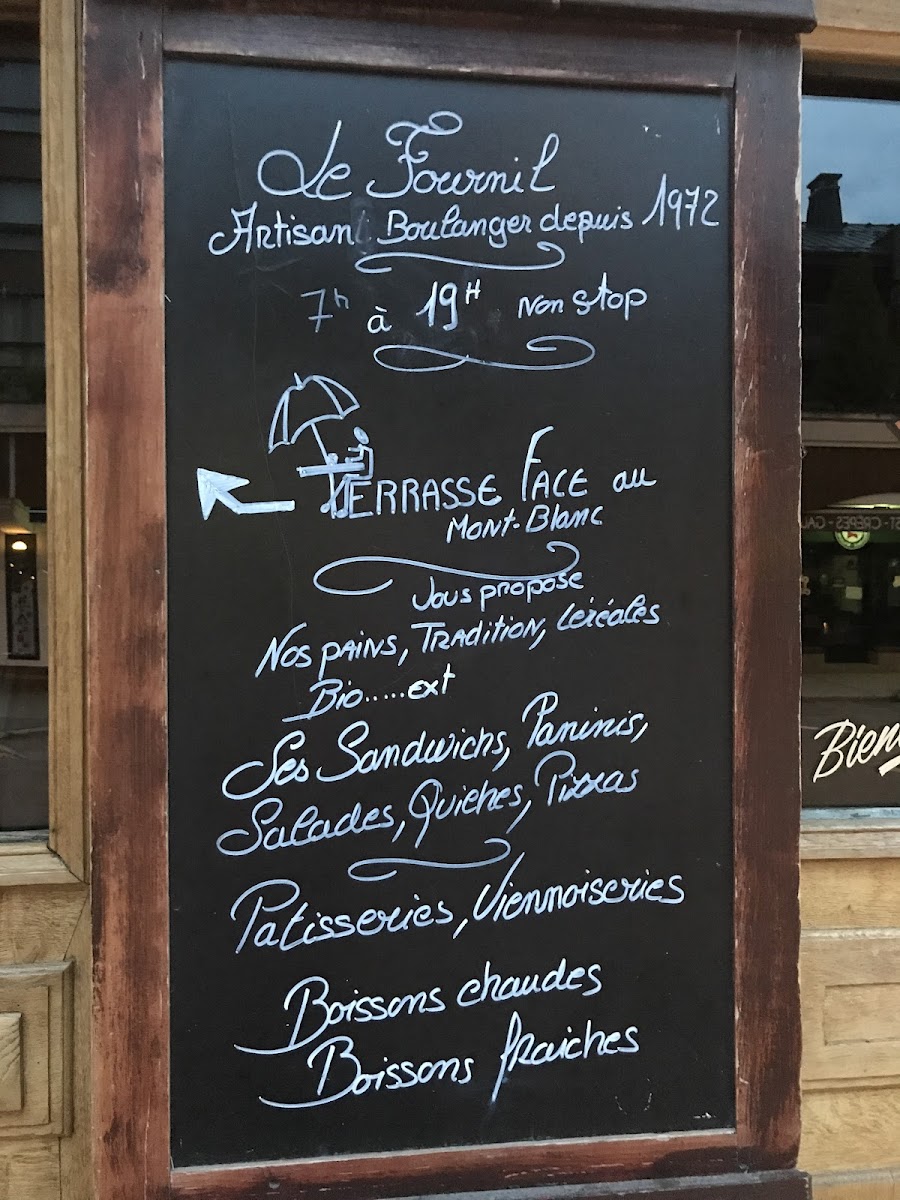 Le Fournil
Artisan Boulanger depuis 1972
7h à 19H Non stop
TERRASSE FACE au
MONT-Blanc
Vous propose
NOS PAINS, TRADITION, Céréales
Bio.....ext
Ses Sandwichs, Paninis,
Salades, Quiches, Pizzas
Patisseries, Viennoiseries
Boissons chaudes
Boissons fraiches
Bien